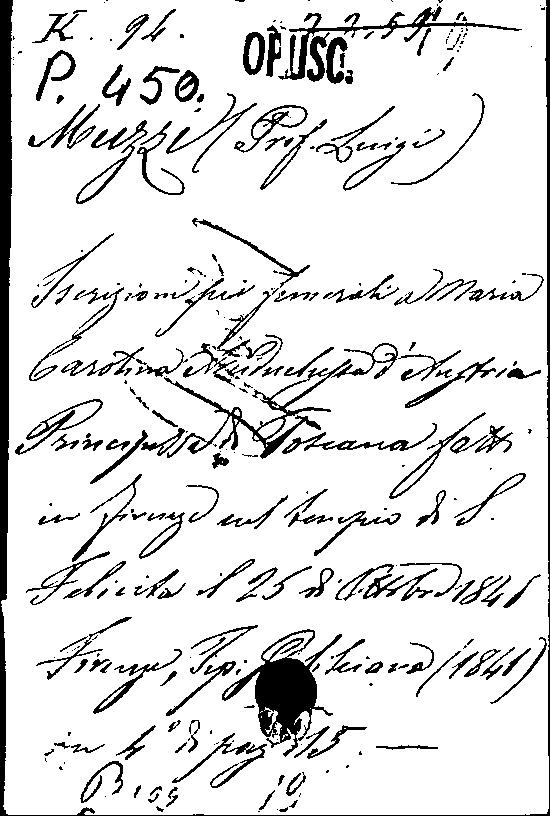 K. 94.
OPUSC.
P. 450.
Muzzi (Prof. Luigi)
Iscrizioni pei funerali a Maria
Carolina Arciduchessa d'Austria
Principessa di Toscana fatti
in Firenze nel tempio di S.
Felicita il 25 di Ottobre 1841
Firenze, Tip. Galileiana (1841)
in 4° di pag. 15. —
19